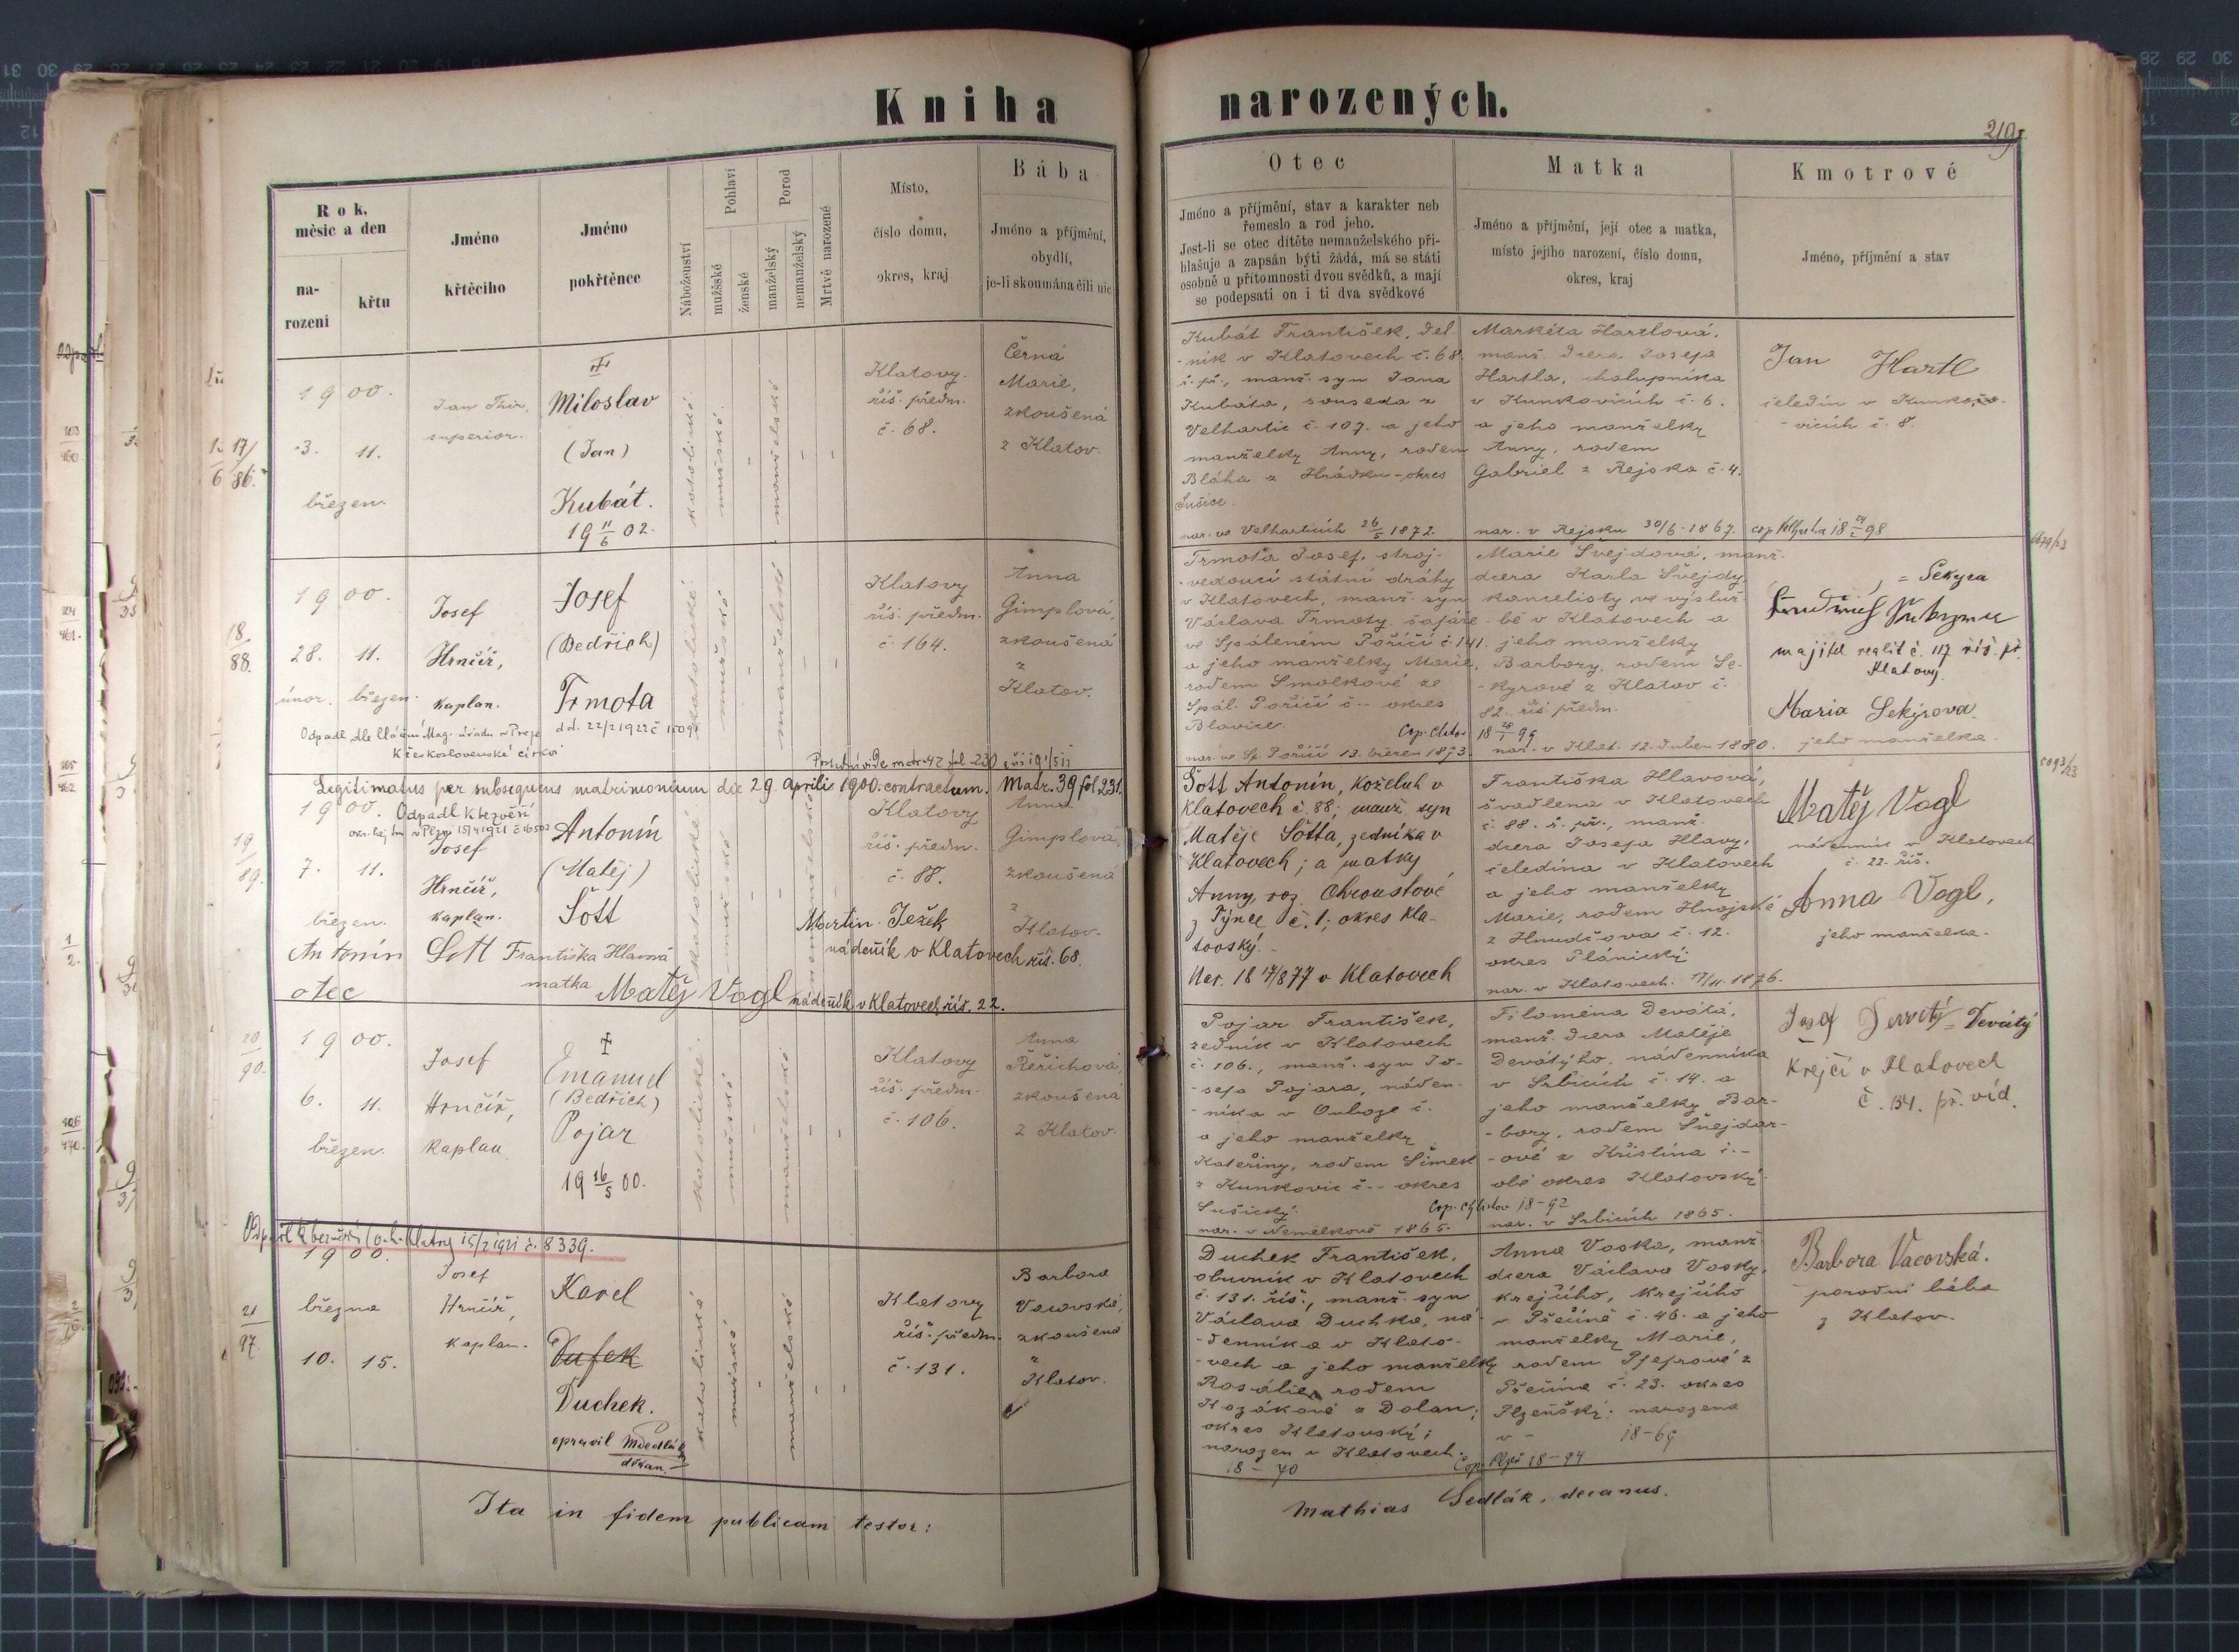 Kniha narozených.
219
Rok, měsíc a den
na-
rození
křtu
Jméno
křtěcího
Jméno
pokřtěnce
Náboženství
Pohlaví
mužšské
ženské
Porod
manželský
nemanželský
Mrtvě narozené
Místo,
číslo domu,
okres, kraj
Bába
Jméno a příjmění,
obydlí,
je-li skoumána čili nic
Otec
Jméno a příjmění, stav a karakter neb
řemeslo a rod jeho.
Jest-li se otec dítěte nemanželského při-
hlašuje a zapsán býti žádá, má se státi
osobně u přítomnosti dvou svědků, a mají
se podepsati on i ti dva svědkové
Matka
Jméno a příjmění, její otec a matka,
místo jejího narození, číslo domu,
okres, kraj
Kmotrové
Jméno, příjmění a stav
17/
86.
1900.
3. 11.
březen.
Jan
superior.
Miloslav
(Jan)
Kubát.
19 11/6 02.
katolické
mužské
-
manželské
-
-
Klatovy.
říš. předm.
č. 68.
Černá
Marie,
zkoušená
z Klatov.
Kubát František, děl-
-ník v Klatovech č. 68
ř. př., manž. syn Jana
Kubáta, souseda z
Velhartic č. 107. a jeho
manželky Anny, rodem
Bláha z Hrádku - okres
Sušice.
nar. ve Velharticích 26/5 1872.
Markéta Hartlová.
manž. dcera Josefa
Hartla, chalupníka
v Kunkovicích č. 6.
a jeho manželky
Anny, rodem
Gabriel z Rejska č. 4.
nar. v Rejsku 30/6 1867.
Jan Hartl
čeledín v Kunko-
-vicích č. 8.
18/
88.
1900.
28. 11.
únor. březen.
Josef
Hrnčíř,
kaplan.
Josef
(Bedřich)
Trmota
katolické
mužské
-
manželské
-
-
Klatovy
říš. předm.
č. 164.
Anna
Gimplová,
zkoušená
z
Klatov.
Odpadl dle Mag. úřadu v Praze d.d. 22/2 1922 č
k československé církvi
Trmota Josef, stroj-
-vedoucí státní dráhy
v Klatovech, manž. syn
Václava Trmoty, šafáře
ve Spáleném Poříčí č. 141.
a jeho manželky Marie,
rodem Smolkové ze
Spál. Poříčí č -- okres
Blovice.
nar. ve Sp. Poříčí 13. březen 1873.
Marie Švejdová, manž.
dcera Karla Švejdy,
kancelisty ve výsluž-
-bě v Klatovech a
jeho manželky
Barbory, rodem Se-
-kyrové z Klatov č.
82. říš. předm.
nar. v Klat. 12. duben 1880.
= Sekyra
majitel realit č. 117 říš. př.
Klatovy.
Maria Sekýrova
jeho manželka.
Legitimatus per subsequens matrimonium die 29. Aprilis 1900. contractum. Matr. 39 fol 231.
19/
89.
1900. Odpadl k bezvěří
7. 11.
březen.
Josef
Hrnčíř,
kaplan.
Antonín
(Matěj)
Šott
katolické
mužské
-
-
-
Klatovy
říš. předm.
č. 88.
Anna
Gimplová,
zkoušená
z
Klatov.
Martin Ježek
nádeník v Klatovech říš. 68.
Antonín Šott Františka Hlavová
otec matka Matěj Vogl nádeník v Klatovech říš. 22.
Šott Antonín, koželuh v
Klatovech č. 88; manž. syn
Matěje Šotta, zedníka v
Klatovech; a matky
Anny, roz. Chroustové
z Týnce č. 1; okres Kla-
tovský.
Nar. 18 17/8 77 v Klatovech
Františka Hlavová,
švadlena v Klatovech
č. 88. ř. př., manž.
dcera Josefa Hlavy,
čeledína v Klatovech
a jeho manželky
Marie, rodem Hnojské
z Hnačova č. 12.
okres Plánický.
nar. v Klatovech.
Matěj Vogl
nádenník v Klatovech
č. 22. říš.
Anna Vogl,
jeho manželka.
20
90.
1900.
6. 11.
březen.
Josef
Hrnčíř,
kaplan
Emanuel
(Bedřich)
Pojar
19 16/5 00.
katolické
mužské
-
manželské
-
-
Klatovy
říš. předm.
č. 106.
Anna
Řeřichová,
zkoušená
z Klatov.
Pojar František,
zedník v Klatovech
č. 106., manž. syn Jo-
-sefa Pojara, náden-
-níka v
a jeho manželky
Kateřiny, rodem Šimek
z Kunkovic č -- okres
Sušický.
nar. v Nemilkově 1865.
Filoména Devátá,
manž. dcera Matěje
Devátýho, nádenníka
v Srbicích č. 14. a
jeho manželky Bar-
-bory, rodem Šnejdar-
-ové z Křištína č. -
obé okres Klatovský.
nar. v Srbicích 1865.
Josef = Devátý
krejčí v Klatovech
č. 134. př. víd.
Odpadl k bezvěří (o.h. Klatovy 15/2 1921 č. 8339.
21
97.
1900.
března
10. 15.
Josef
Hrnčíř,
kaplan.
Karel
Dufek
Duchek.
opravil MSedlák
děkan.
katolické
mužské
-
manželské
-
-
Klatovy
říš. předm.
č. 131.
Barbora
Vacovská,
zkoušená
z
Klatov.
Duchek František,
obuvník v Klatovech
č. 131. říš., manž. syn
Václava Duchka, ná-
-denníka v Klato-
-vech a jeho manželky
Rosálie, rodem
Kozákové z Dolan;
okres Klatovský;
narozen v Klatovech.
18 - 70
Anna Voska, manž.
dcera Václava Vosky,
krejčího, krejčího
v Přešíně č. 46. a jeho
manželky Marie,
rodem
Přešína č. 23. okres
Plzeňský; narozena
v - 18-69
Barbora Vacovská.
porodní bába
z Klatov.
Ita in fidem publicam testor:
Mathias Sedlák, decanus.